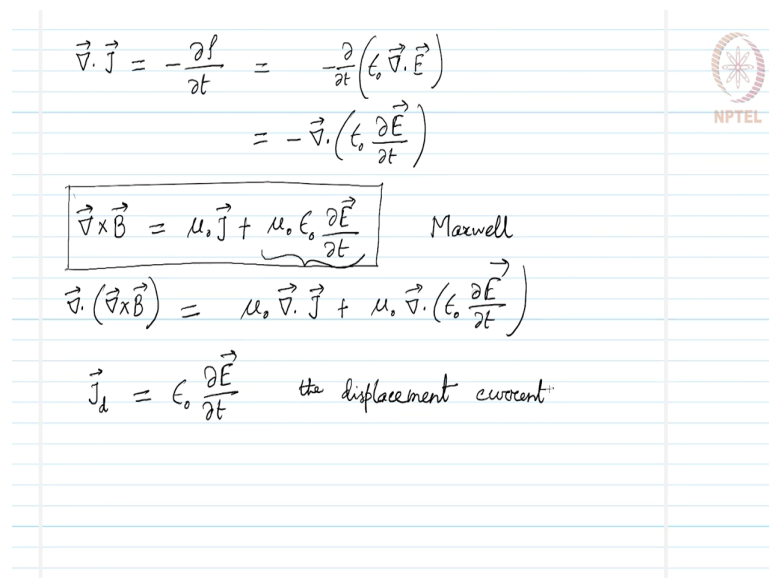 ∇⃗·J⃗ = -∂ρ/∂t = -∂/∂t (ϵ₀ ∇⃗·E⃗)
= -∇⃗·(ϵ₀ ∂E⃗/∂t)
∇⃗×B⃗ = μ₀J⃗ + μ₀ϵ₀ ∂E⃗/∂t Maxwell
∇⃗·(∇⃗×B⃗) = μ₀ ∇⃗·J⃗ + μ₀ ∇⃗·(ϵ₀ ∂E⃗/∂t)
J⃗_d = ϵ₀ ∂E⃗/∂t the displacement current
NPTEL